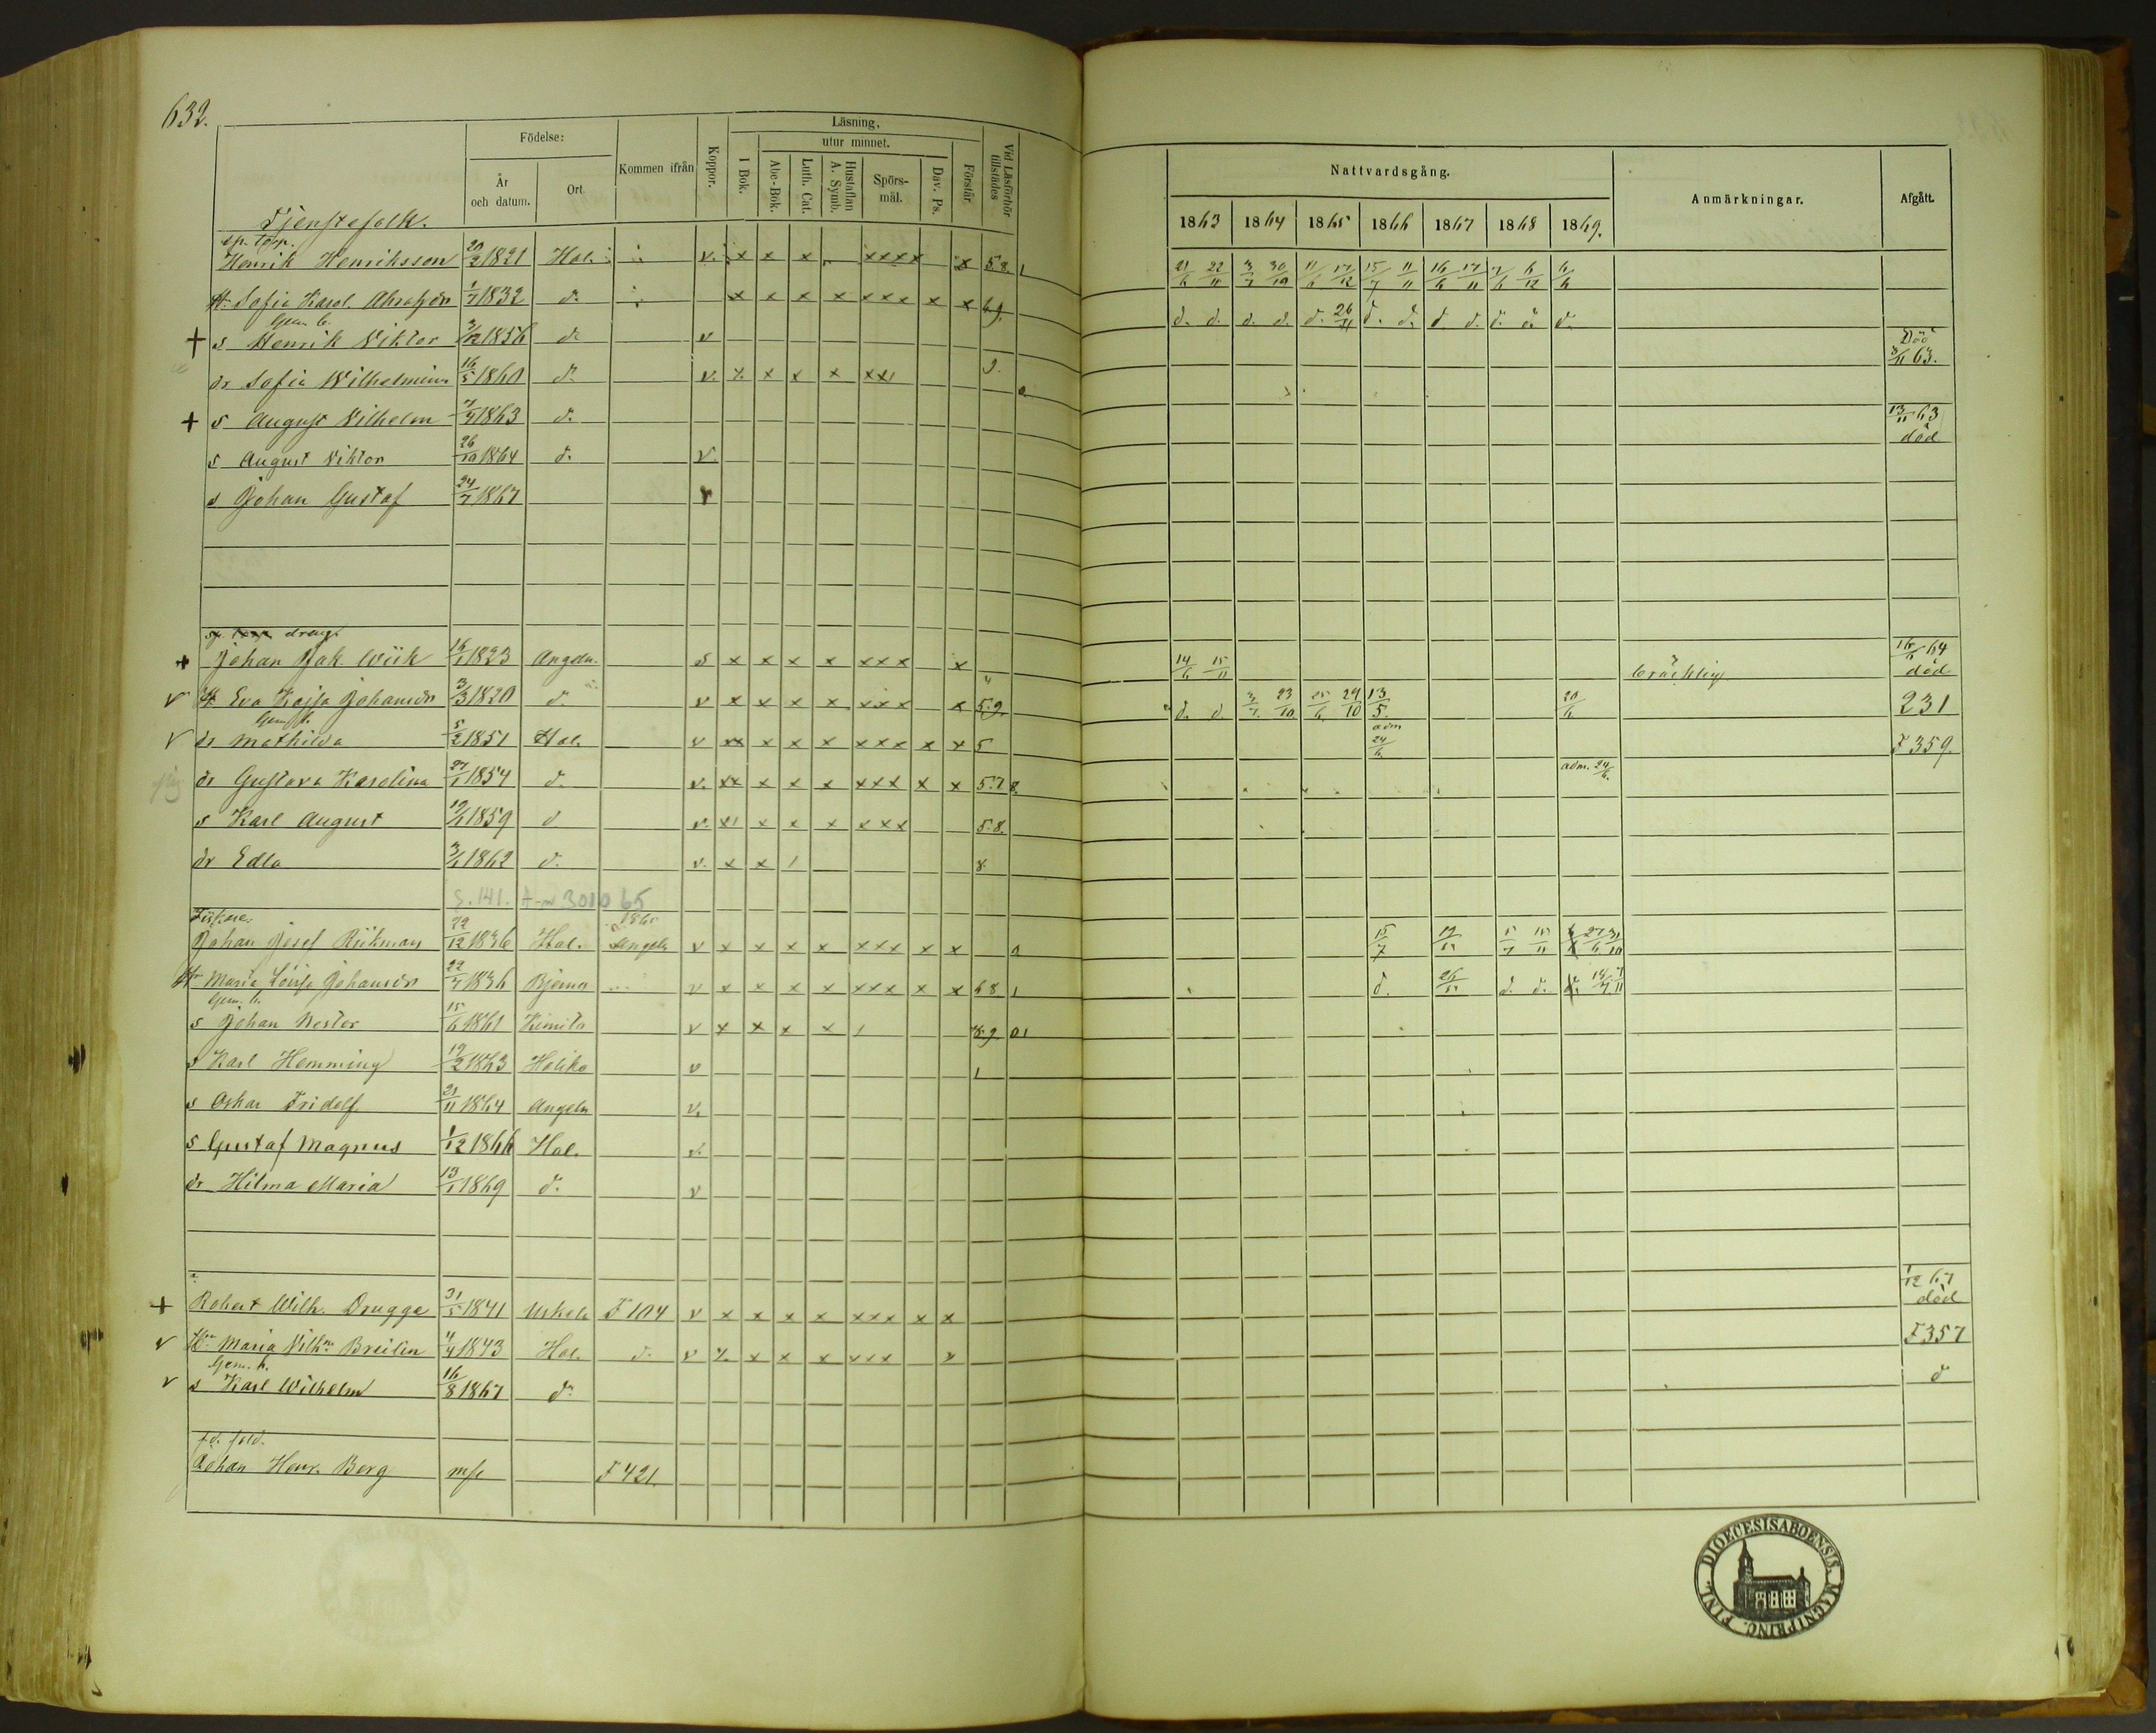 632.
Födelse:
Kommen ifrån
Koppor.
Läsning,
utur minnet.
Vid Läsförhör tillstädes
År och datum.
Ort.
I Bok.
Abc-Bok.
Luth. Cat.
Hustaflan A. Symb.
Spörs-mål.
Dav. Ps.
Förstår.
Nattvardsgång.
Anmärkningar.
Afgått.
1863 1864 1865 1866 1867 1868 1869.
Tjenstefolk.
sp. torp.
Henrik Henriksson 20/2 1821 Hal. v. x x x xxxx x 5.8. 1 21/6 22/11 3/7 30/10 11/6 17/12 15/7 11/11 16/6 17/11 6/12
H. Sofia Karol. 1/7 1832 d. x x x x xxx x x 6.9. d. d. d. d. d. 26/11 d. d. d. d. d. d. d.
Gem. b.
+ s Henrik Viktor 3/12 1856 d. v Död 3/11 63.
dr Sofia Wilhelmina 16/5 1860 d. v. x x x 9.
+ s August Vilhelm 1863 d. 13/11 63 död
s August Viktor 26/10 1864 d. v.
s Johan Gustaf 24/7 1867 v
sp. torp. dreng.
+ Johan Jak. Wiik 16/1 1823 Angeln. s x x x x xxx x 14/6 15/11 bräcklig 16/6 64 död
v H. Eva Kajsa Johansdr 3/3 1820 d. v x x x x xxx x 5.9. d. d. 3/7 23/10 25/6 29/10 13/5 20/6 231
Gem. b.
v dr Mathilda 5/2 1851 Hal. v xx x x x xxx x x 5 adm 24/6. F 359.
dr Gustava Karolina 27/1 1854 d. v. xx x x x xxx x x 5.7 8. adm. 24/6.
s Karl August 19/1 1859 d v. x x x xxx 5.8.
dr Edla 3/1 1862 d. v. x x / 8.
S. 141. 3010 65
Fiskare.
Johan Josef Rükman 22/12 1836 Hal. 1865 Angeln v x x x x xxx x x 15/7
Hr Maria Lovisa Johansdr 22/7 1836 Bjerno v x x x x xxx x x 6 8 1 d. d. d.
Gem. b.
s Johan Nestor 15/6 1861 Kimito v x x x x / 8.9. 01
s Karl Hemming 19/2 1863 Haliko v 1
s Oskar Fridolf 21/11 1864 Angeln v.
s Gustaf Magnus 1/12 1866 Hal. v.
dr Hilma Maria 13/1 1869 d. v
+ Robert Wilh. Drugge 31/5 1841 Uskela F 104 v x x x x xxx x x 1/12 67 död
v Hr Maria Vilh:na Breilin 4/4 1843 Hal. d. v x x x xxx x F 357
Gem. b.
v s Karl Wilhelm 16/8 1867 d. d
f.d. sold.
Johan Henr. Berg F 421.
FINL. DIOECESIS ABOENSIS. MAGNI PRINC.